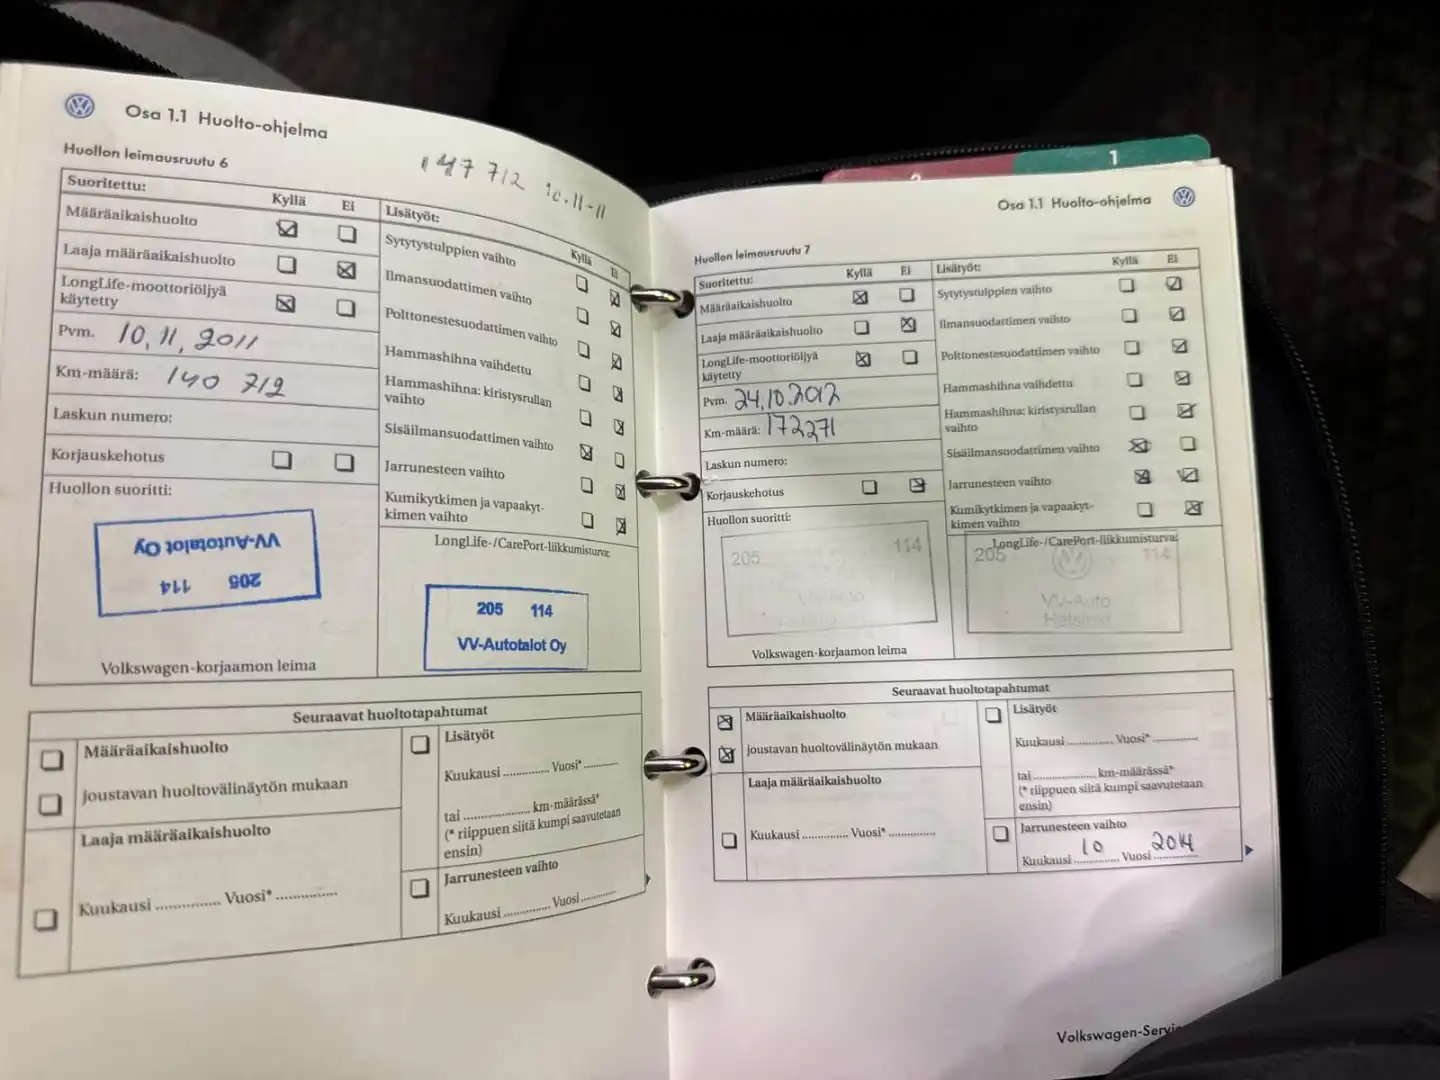 Osa 1.1 Huolto-ohjelma
Huollon leimausruutu 6
712 10.11-11
Suoritettu:
Kyllä Ei
Määräaikaishuolto
Laaja määräaikaishuolto
LongLife-moottoriöljyä
käytetty
Pvm. 10.11.2011
Km-määrä: 140 712
Laskun numero:
Korjauskehotus
Huollon suoritti:
VV-Autotalot Oy
205 114
Volkswagen-korjaamon leima
Lisätyöt:
Kyllä Ei
Sytytystulppien vaihto
Ilmansuodattimen vaihto
Polttonestesuodattimen vaihto
Hammashihna vaihdettu
Hammashihna: kiristysrullan
vaihto
Sisäilmansuodattimen vaihto
Jarrunesteen vaihto
Kumikytkimen ja vapaakyt-
kimen vaihto
LongLife-/CarePort-liikkumisturva:
205 114
VV-Autotalot Oy
Seuraavat huoltotapahtumat
Määräaikaishuolto
joustavan huoltovälinäytön mukaan
Laaja määräaikaishuolto
Kuukausi .............. Vuosi* ..............
Lisätyöt
Kuukausi .............. Vuosi* ..............
tai .................... km-määrässä*
(* riippuen siitä kumpi saavutetaan
ensin)
Jarrunesteen vaihto
Kuukausi .............. Vuosi ..............
1
Osa 1.1 Huolto-ohjelma
Huollon leimausruutu 7
Suoritettu:
Kyllä Ei
Määräaikaishuolto
Laaja määräaikaishuolto
LongLife-moottoriöljyä
käytetty
Pvm. 24.10.2012
Km-määrä: 172271
Laskun numero:
Korjauskehotus
Huollon suoritti:
205 114
Volkswagen-korjaamon leima
Lisätyöt:
Kyllä Ei
Sytytystulppien vaihto
Ilmansuodattimen vaihto
Polttonestesuodattimen vaihto
Hammashihna vaihdettu
Hammashihna: kiristysrullan
vaihto
Sisäilmansuodattimen vaihto
Jarrunesteen vaihto
Kumikytkimen ja vapaakyt-
kimen vaihto
LongLife-/CarePort-liikkumisturva:
205 114
VV-Auto
Helsinki
Seuraavat huoltotapahtumat
Määräaikaishuolto
joustavan huoltovälinäytön mukaan
Laaja määräaikaishuolto
Kuukausi .............. Vuosi* ..............
Lisätyöt
Kuukausi .............. Vuosi* ..............
tai .................... km-määrässä*
(* riippuen siitä kumpi saavutetaan
ensin)
Jarrunesteen vaihto
Kuukausi 10 Vuosi 2014